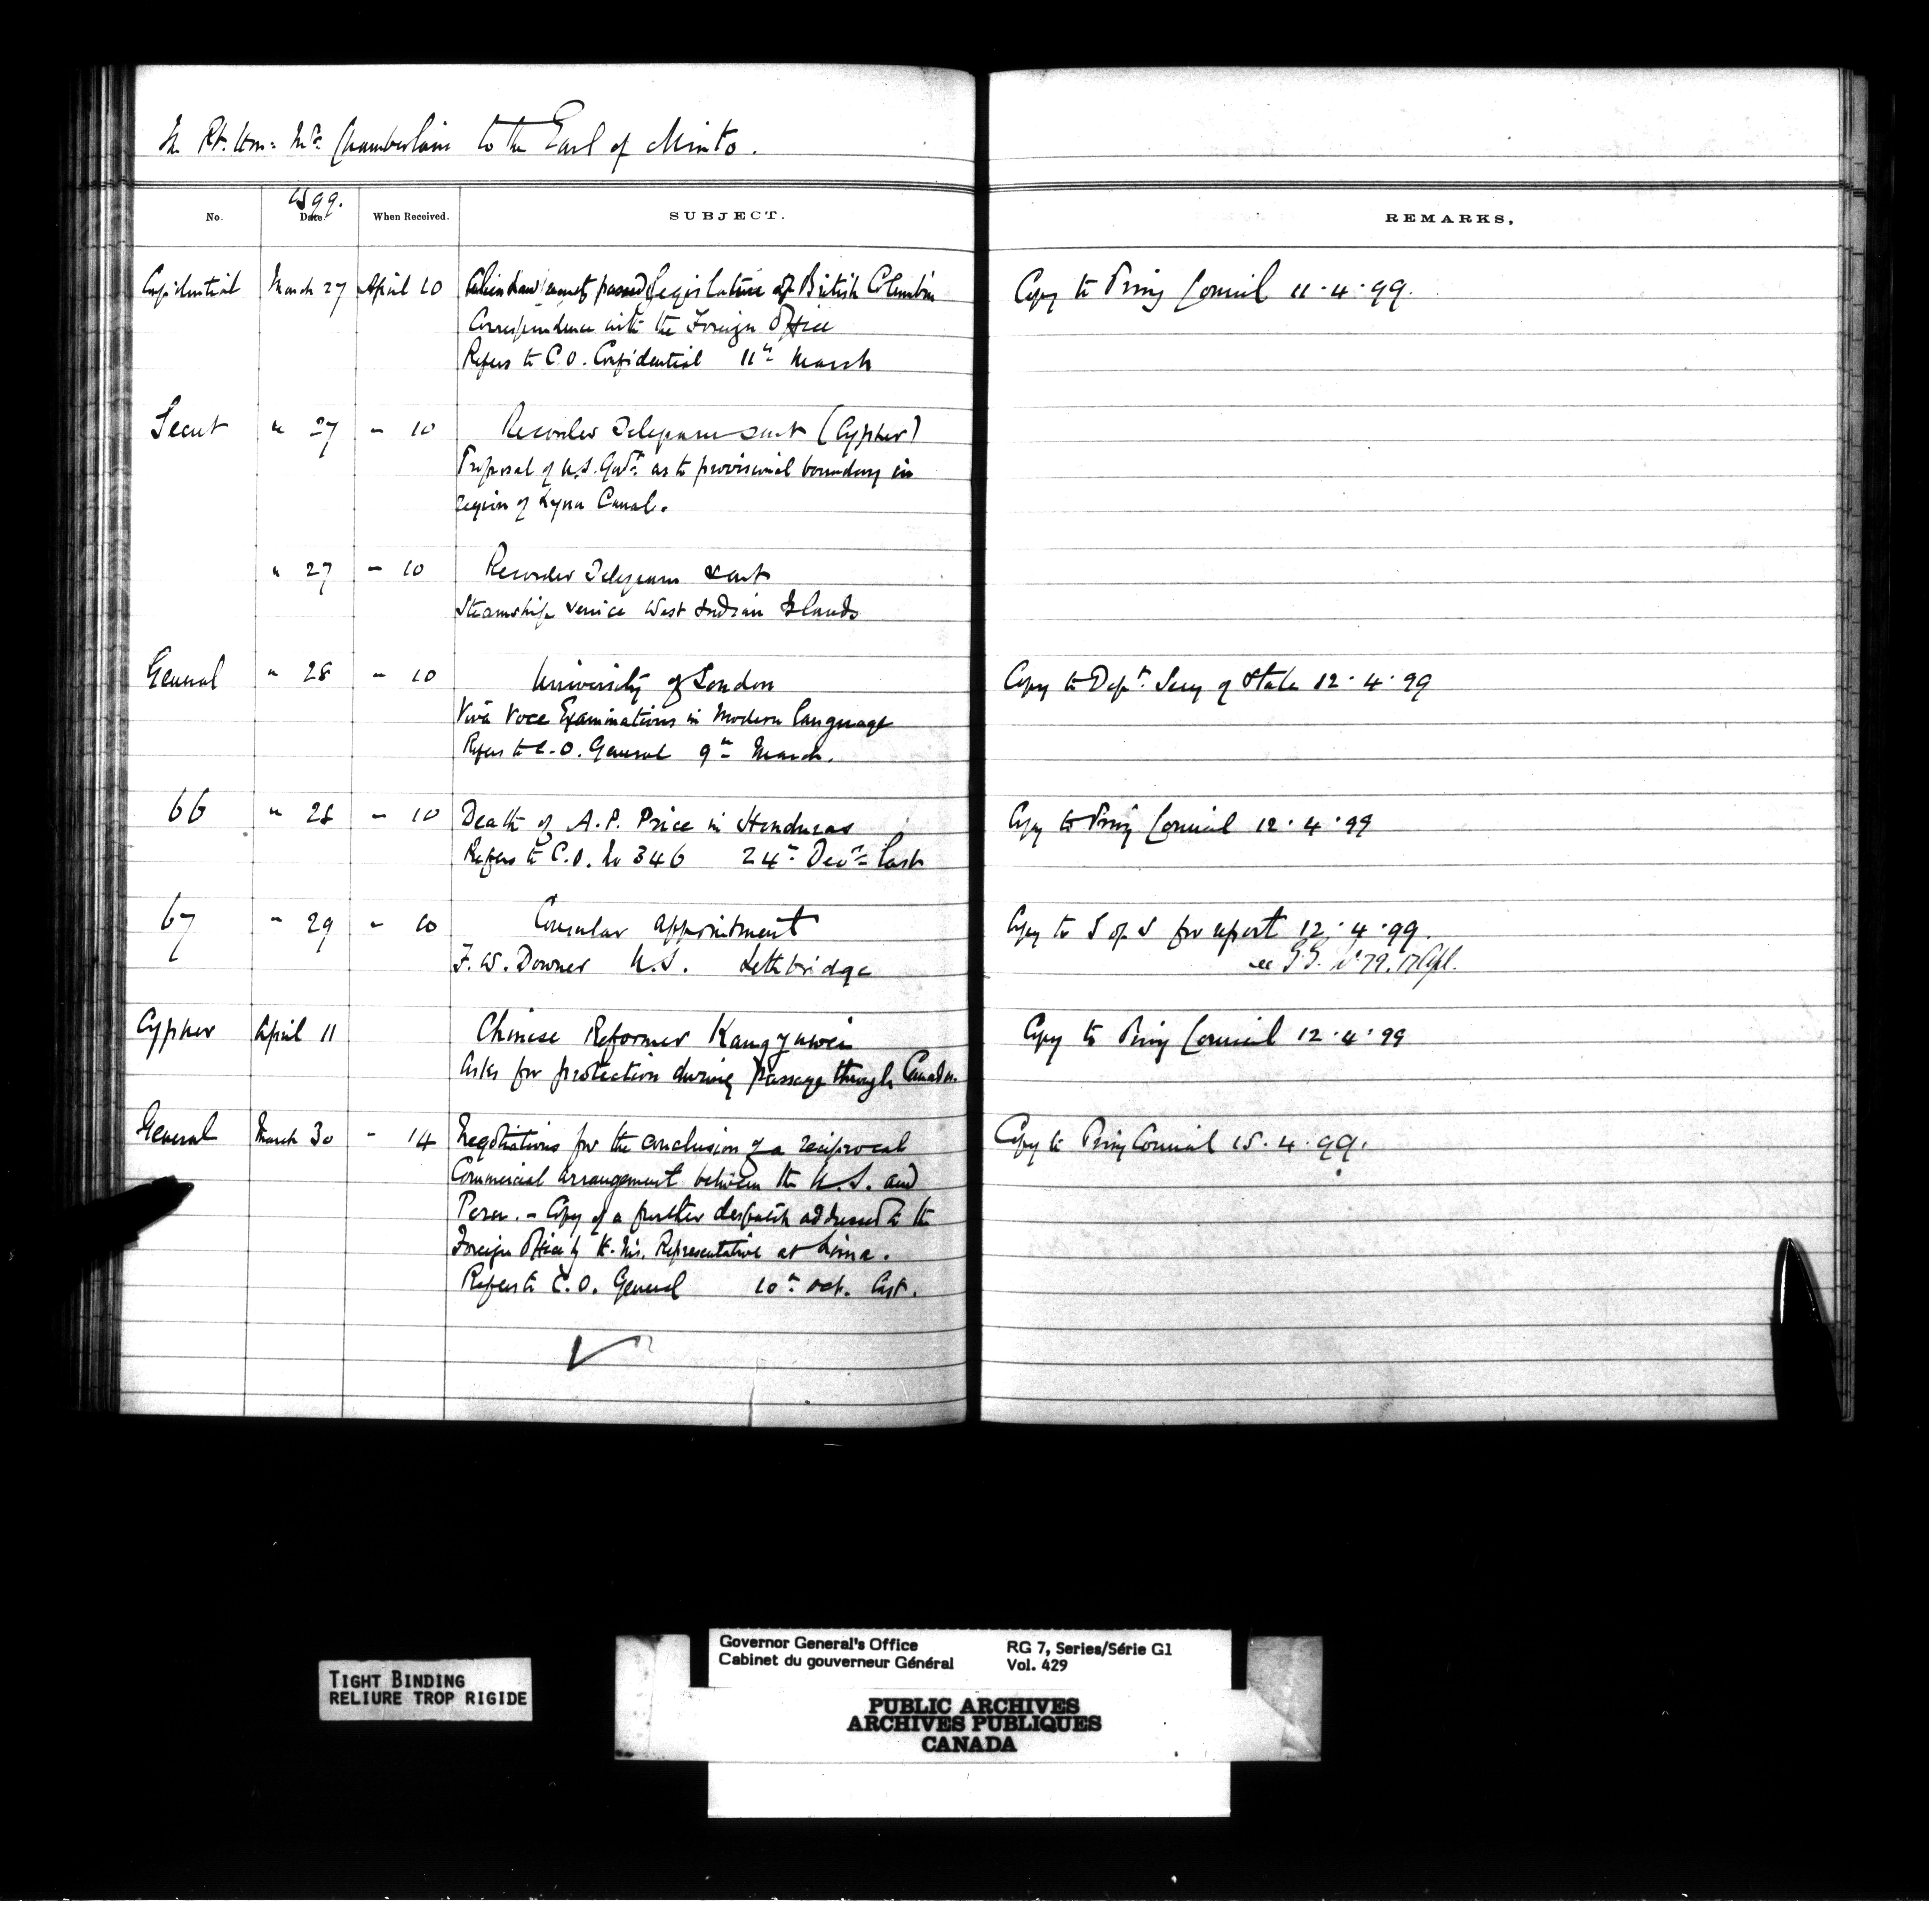 The Rt. Hon: Mr. Chamberlain to the Earl of Minto.
1899.
No. Date. When Received. SUBJECT. REMARKS.
Confidential March 27 April 10 passed Legislature of British Columbia Copy to Privy Council 11.4.99.
Correspondence with the Foreign Office
Refers to C.O. Confidential 11th March
Secret " 27 - 10 Recorder Telegram sent (Cypher)
Proposal of U.S. Govt. as to provisional boundary in
region of Lynn Canal.
" 27 - 10 Recorder Telegram sent
Steamship service West Indian Islands
General " 28 - 10 University of London Copy to Dept. Secy of State 12.4.99
Viva Voce Examinations in Modern Language
Refers to C.O. General 9th March.
66 " 28 - 10 Death of A.P. Price in Honduras Copy to Privy Council 12.4.99
Refers to C.O. No 346 24th Decr. last
67 " 29 - 10 Consular appointment Copy to S of S for report 12.4.99.
F.W. Downer U.S. Lethbridge see G.G. No 79. 17 Apl.
Cypher April 11 Chinese Reformer Kangyuwei Copy to Privy Council 12.4.99
Asks for protection during passage through Canada.
General March 30 - 14 Negotiations for the conclusion of a reciprocal Copy to Privy Council 15.4.99.
Commercial arrangement between the U.S. and
Peru. - Copy of a further despatch addressed to the
Foreign Office by H.M's. Representative at Lima.
Refers to C.O. General 10th Oct. last.
TIGHT BINDING
RELIURE TROP RIGIDE
Governor General's Office RG 7, Series/Série G1
Cabinet du gouverneur Général Vol. 429
PUBLIC ARCHIVES
ARCHIVES PUBLIQUES
CANADA